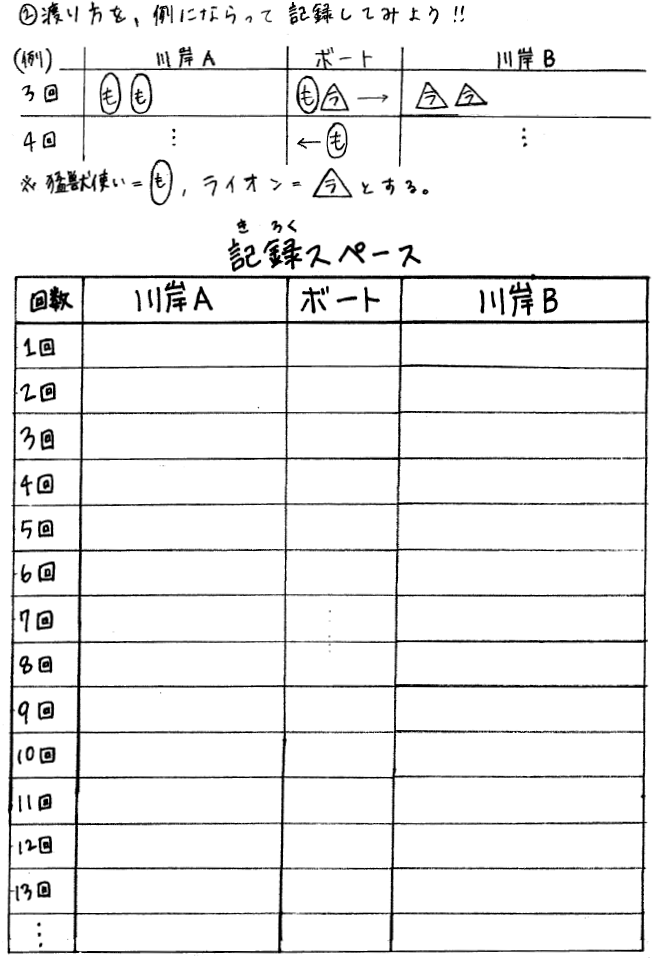 ②渡り方を、例にならって 記録してみよう!!
(例) 川岸A ボート 川岸B
3回 も も も ラ → ラ ラ
4回 ⋮ ← も ⋮
※猛獣使い=も, ライオン=ラとする。
きろく
記録スペース
回数 川岸A ボート 川岸B
1回
2回
3回
4回
5回
6回
7回
8回
9回
10回
11回
12回
13回
⋮